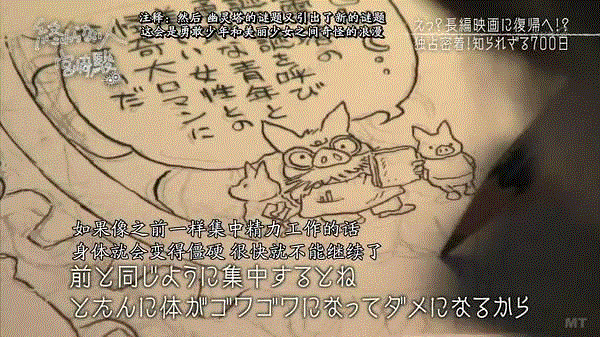 終わらない人
宮﨑駿
注释：然后 幽灵塔的谜题又引出了新的谜题
这会是勇敢少年和美丽少女之间奇怪的浪漫
えっ？長編映画に復帰へ！？
独占密着！知られざる700日
塔の
謎を呼び
な青年と
い女性との
奇大ロマンに
だ
如果像之前一样集中精力工作的话
身体就会变得僵硬 很快就不能继续了
前と同じように集中するとね
とたんに体がゴワゴワになってダメになるから
MT